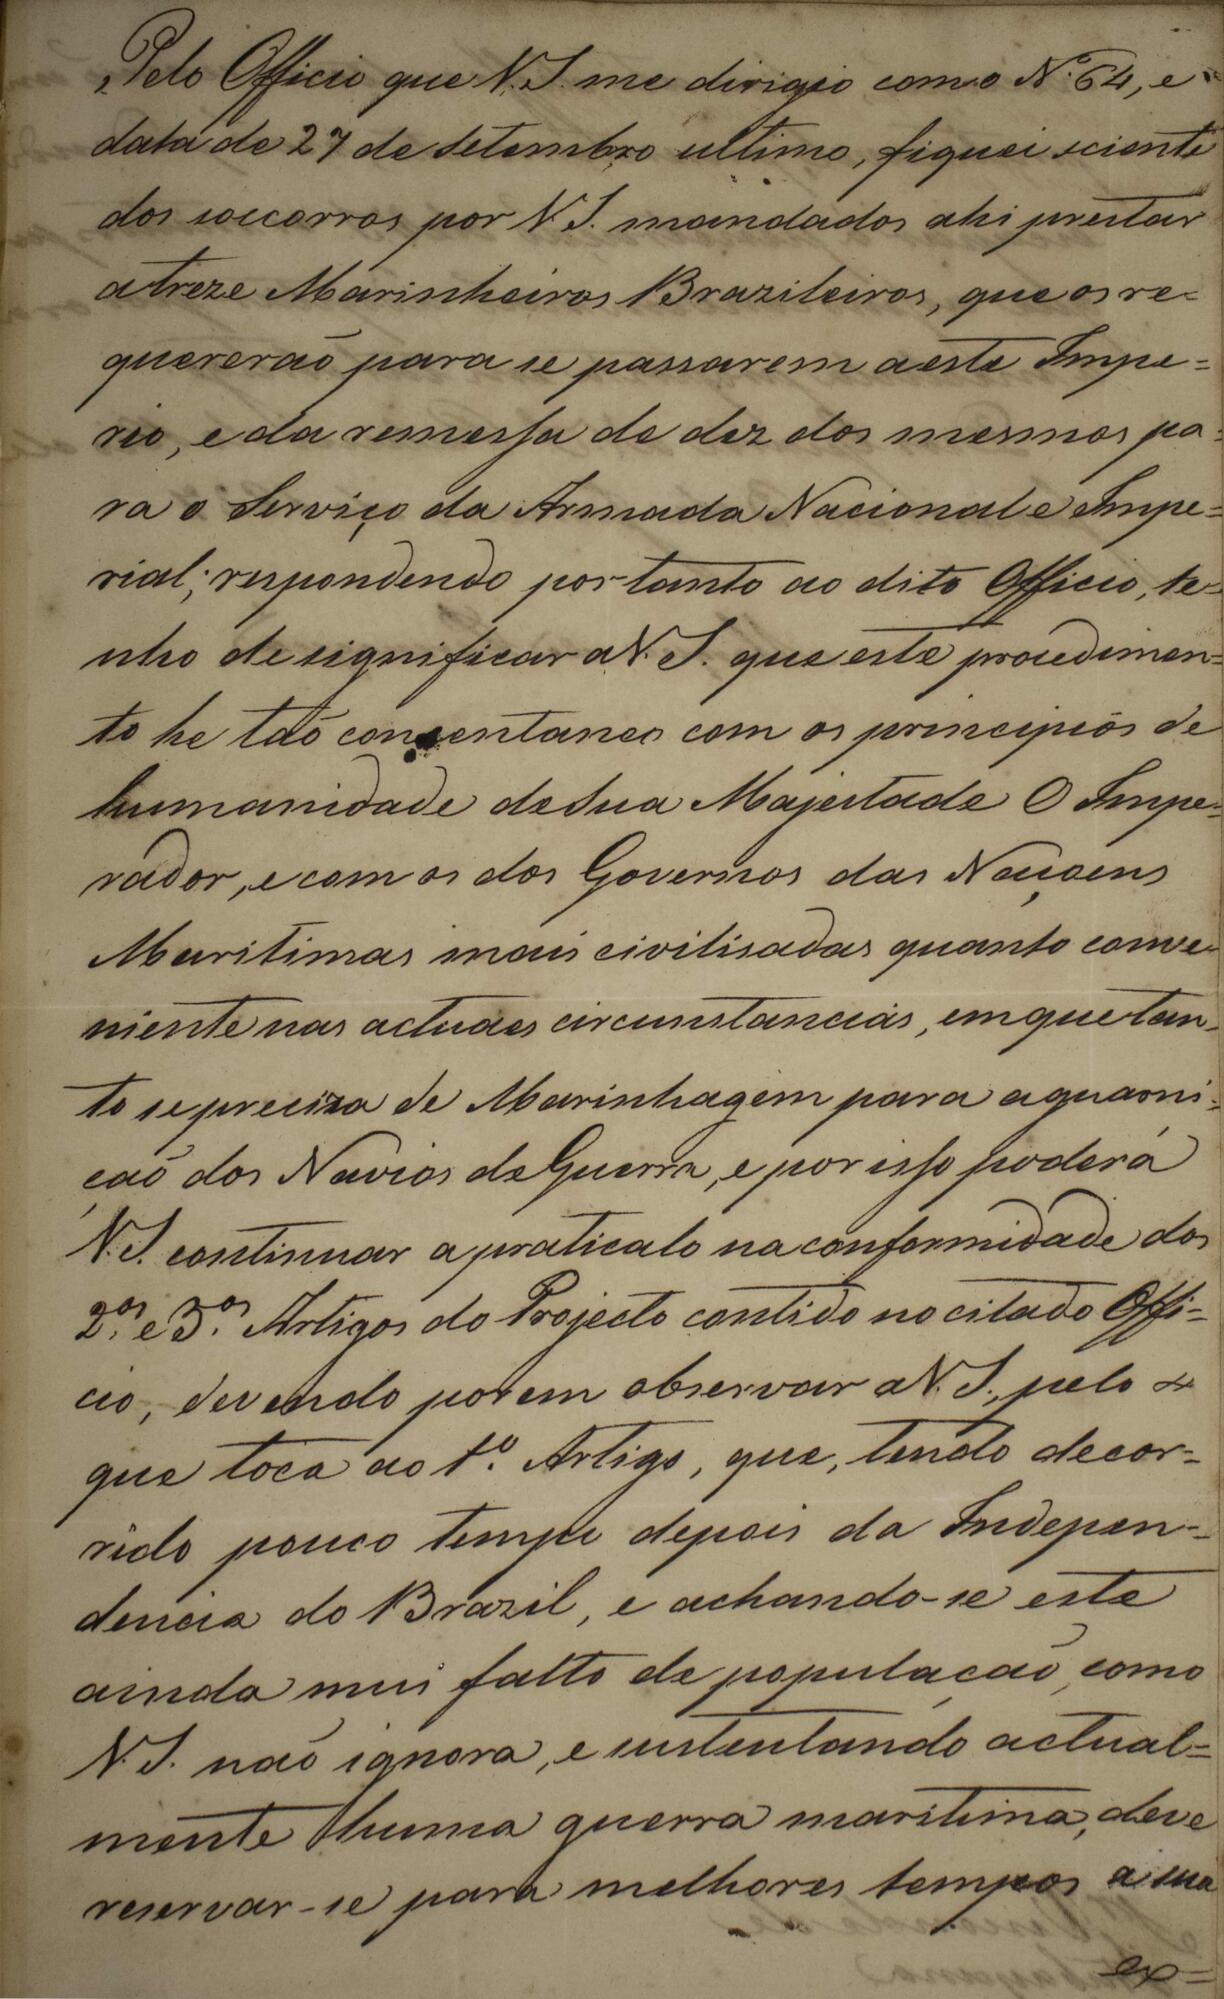 Pelo Officio que V. S. me dirigio com o Nº 64, e
data de 27 de Setembro ultimo, fiquei sciente
dos soccorros por V. S. mandados ahi prestar
a treze Marinheiros Brazileiros, que os re=
quererão para se passarem a este Impe=
rio, e da remessa de dez dos mesmos pa=
ra o Serviço da Armada Nacional e Impe=
rial; respondendo por tanto ao dito Officio, te=
nho de significar a V. S. que este procedimen=
to he tão consentaneo com os principios de
humanidade de Sua Majestade O Impe=
rador, e com os dos Governos das Naçoens
Maritimas mais civilisadas quanto conve=
niente nas actuaes circunstancias, em que tan=
to se precisa de Marinhagem para a guarni=
ção dos Navios de Guerra, e por isso poderá
V. S. continuar a praticalo na conformidade dos
2.os e 3.os Artigos do Projecto contido no citado Offi=
cio, devendo porem observar a V. S., pelo
que toca ao 1º. Artigo, que, tendo decor=
rido pouco tempo depois da Indepen=
dencia do Brazil, e achando-se este
ainda mui falto de população, como
V. S. não ignora, e sustentando actual=
mente huma guerra maritima, deve
reservar-se para melhores tempos a sua
ex=